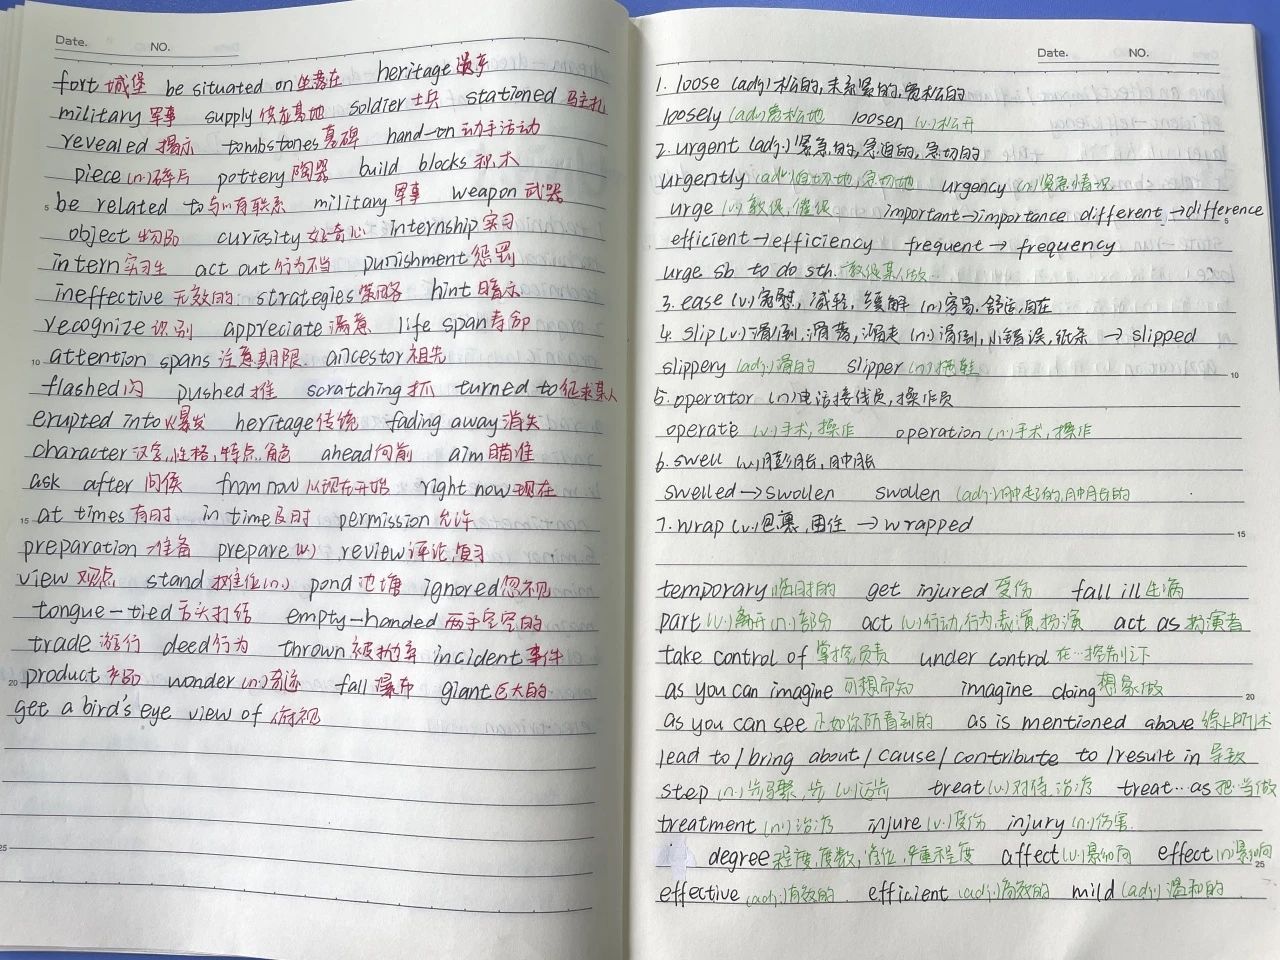 Date. NO.
fort 城堡 be situated on 坐落在 heritage 遗产
military 军事 supply 供应基地 soldier 士兵 stationed 驻扎
revealed 揭示 tombstones 墓碑 hand-on 动手活动
piece (n.) 碎片 pottery 陶器 build blocks 积木
5 be related to 与…有联系 military 军事 weapon 武器
object 物品 curiosity 好奇心 internship 实习
intern 实习生 act out 行为不当 punishment 惩罚
ineffective 无效的 strategies 策略 hint 暗示
recognize 识别 appreciate 满意 life span 寿命
10 attention spans 注意期限 ancestor 祖先
flashed 闪 pushed 推 scratching 抓 turned to 征求某人
erupted into 爆发 heritage 传统 fading away 消失
character 汉字,性格,特点,角色 ahead 向前 aim 瞄准
ask after 问侯 from now 从现在开始 right now 现在
15 at times 有时 in time 及时 permission 允许
preparation 准备 prepare (v.) review 评论,复习
view 观点 stand 摊位(n.) pond 池塘 ignored 忽视
tongue-tied 舌头打结 empty-handed 两手空空的
trade 游行 deed 行为 thrown 被抛弃 incident 事件
20 product 产品 wonder (n.) 奇迹 fall 瀑布 giant 巨大的
get a bird's eye view of 俯视
25
Date. NO.
1. loose (adj.) 松的,未系紧的,宽松的
loosely (adv.) 宽松地 loosen (v.) 松开
2. urgent (adj.) 紧急的,急迫的,急切的
urgently (adv.) 迫切地,急切地 urgency (n.) 紧急情况
urge (v.) 敦促,催促 important→importance different→difference 5
efficient→efficiency frequent→frequency
urge sb to do sth. 敦促某人做…
3. ease (v.) 宽慰,减轻,缓解 (n.) 容易,舒适,自在
4. slip (v.) 滑倒,滑落,溜走 (n.) 滑倒,小错误,纸条 → slipped
slippery (adj.) 滑的 slipper (n.) 拖鞋 10
5. operator (n.) 电话接线员,操作员
operate (v.) 手术,操作 operation (n.) 手术,操作
6. swell (v.) 膨胀,肿胀
swelled→swollen swollen (adj.) 肿起的,肿胀的
7. wrap (v.) 包裹,围住 → wrapped 15
temporary 临时的 get injured 受伤 fall ill 生病
part (v.) 离开 (n.) 部分 act (v.) 行动,行为,表演,扮演 act as 扮演者
take control of 掌控,负责 under control 在…控制之下
as you can imagine 可想而知 imagine doing 想象做 20
as you can see 正如你所看到的 as is mentioned above 综上所述
lead to / bring about / cause / contribute to / result in 导致
step (n.) 步骤,步 (v.) 迈步 treat (v.) 对待,治疗 treat…as 把…当做
treatment (n.) 治疗 injure (v.) 受伤 injury (n.) 伤害
degree 程度,度数,学位,严重程度 affect (v.) 影响 effect (n.) 影响 25
effective (adj.) 有效的 efficient (adj.) 高效的 mild (adj.) 温和的